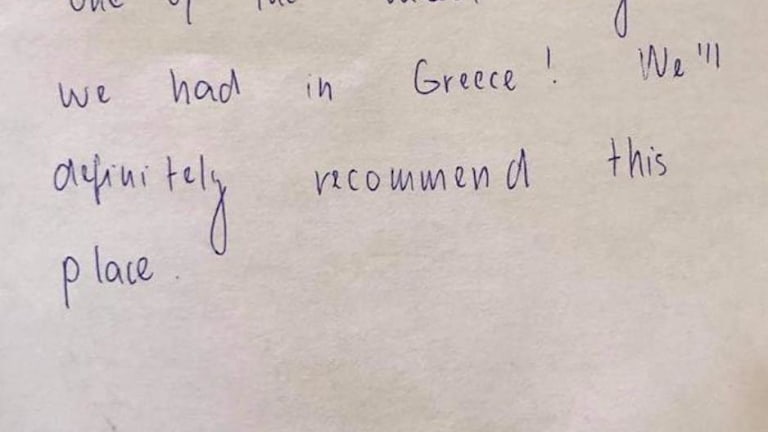 one of the
we had in Greece! We'll
definitely recommend this
place.